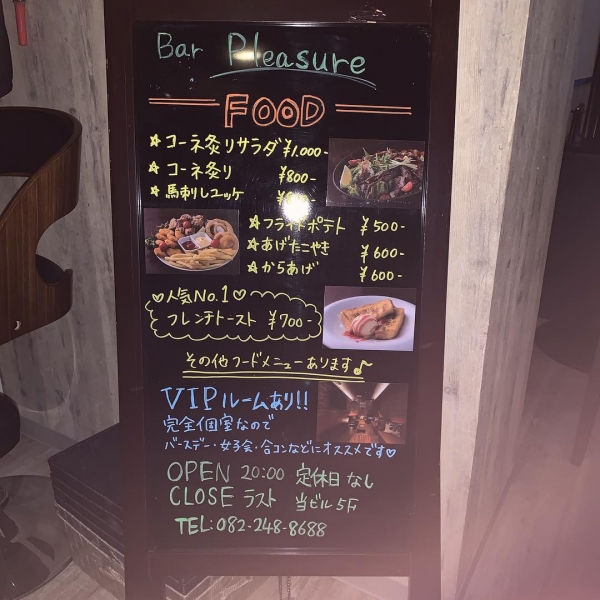 Bar Pleasure
FOOD
☆コーネ炙りサラダ ¥1.000-
☆コーネ炙り ¥800-
☆馬刺しユッケ
☆フライドポテト ¥500-
☆あげたこやき ¥600-
☆からあげ ¥600-
♡人気No.1♡
フレンチトースト ¥700-
その他フードメニューあります♪
VIPルームあり!!
完全個室なので
バースデー・女子会・合コンなどにオススメです♡
OPEN 20:00 定休日なし
CLOSE ラスト 当ビル5F
TEL:082-248-8688